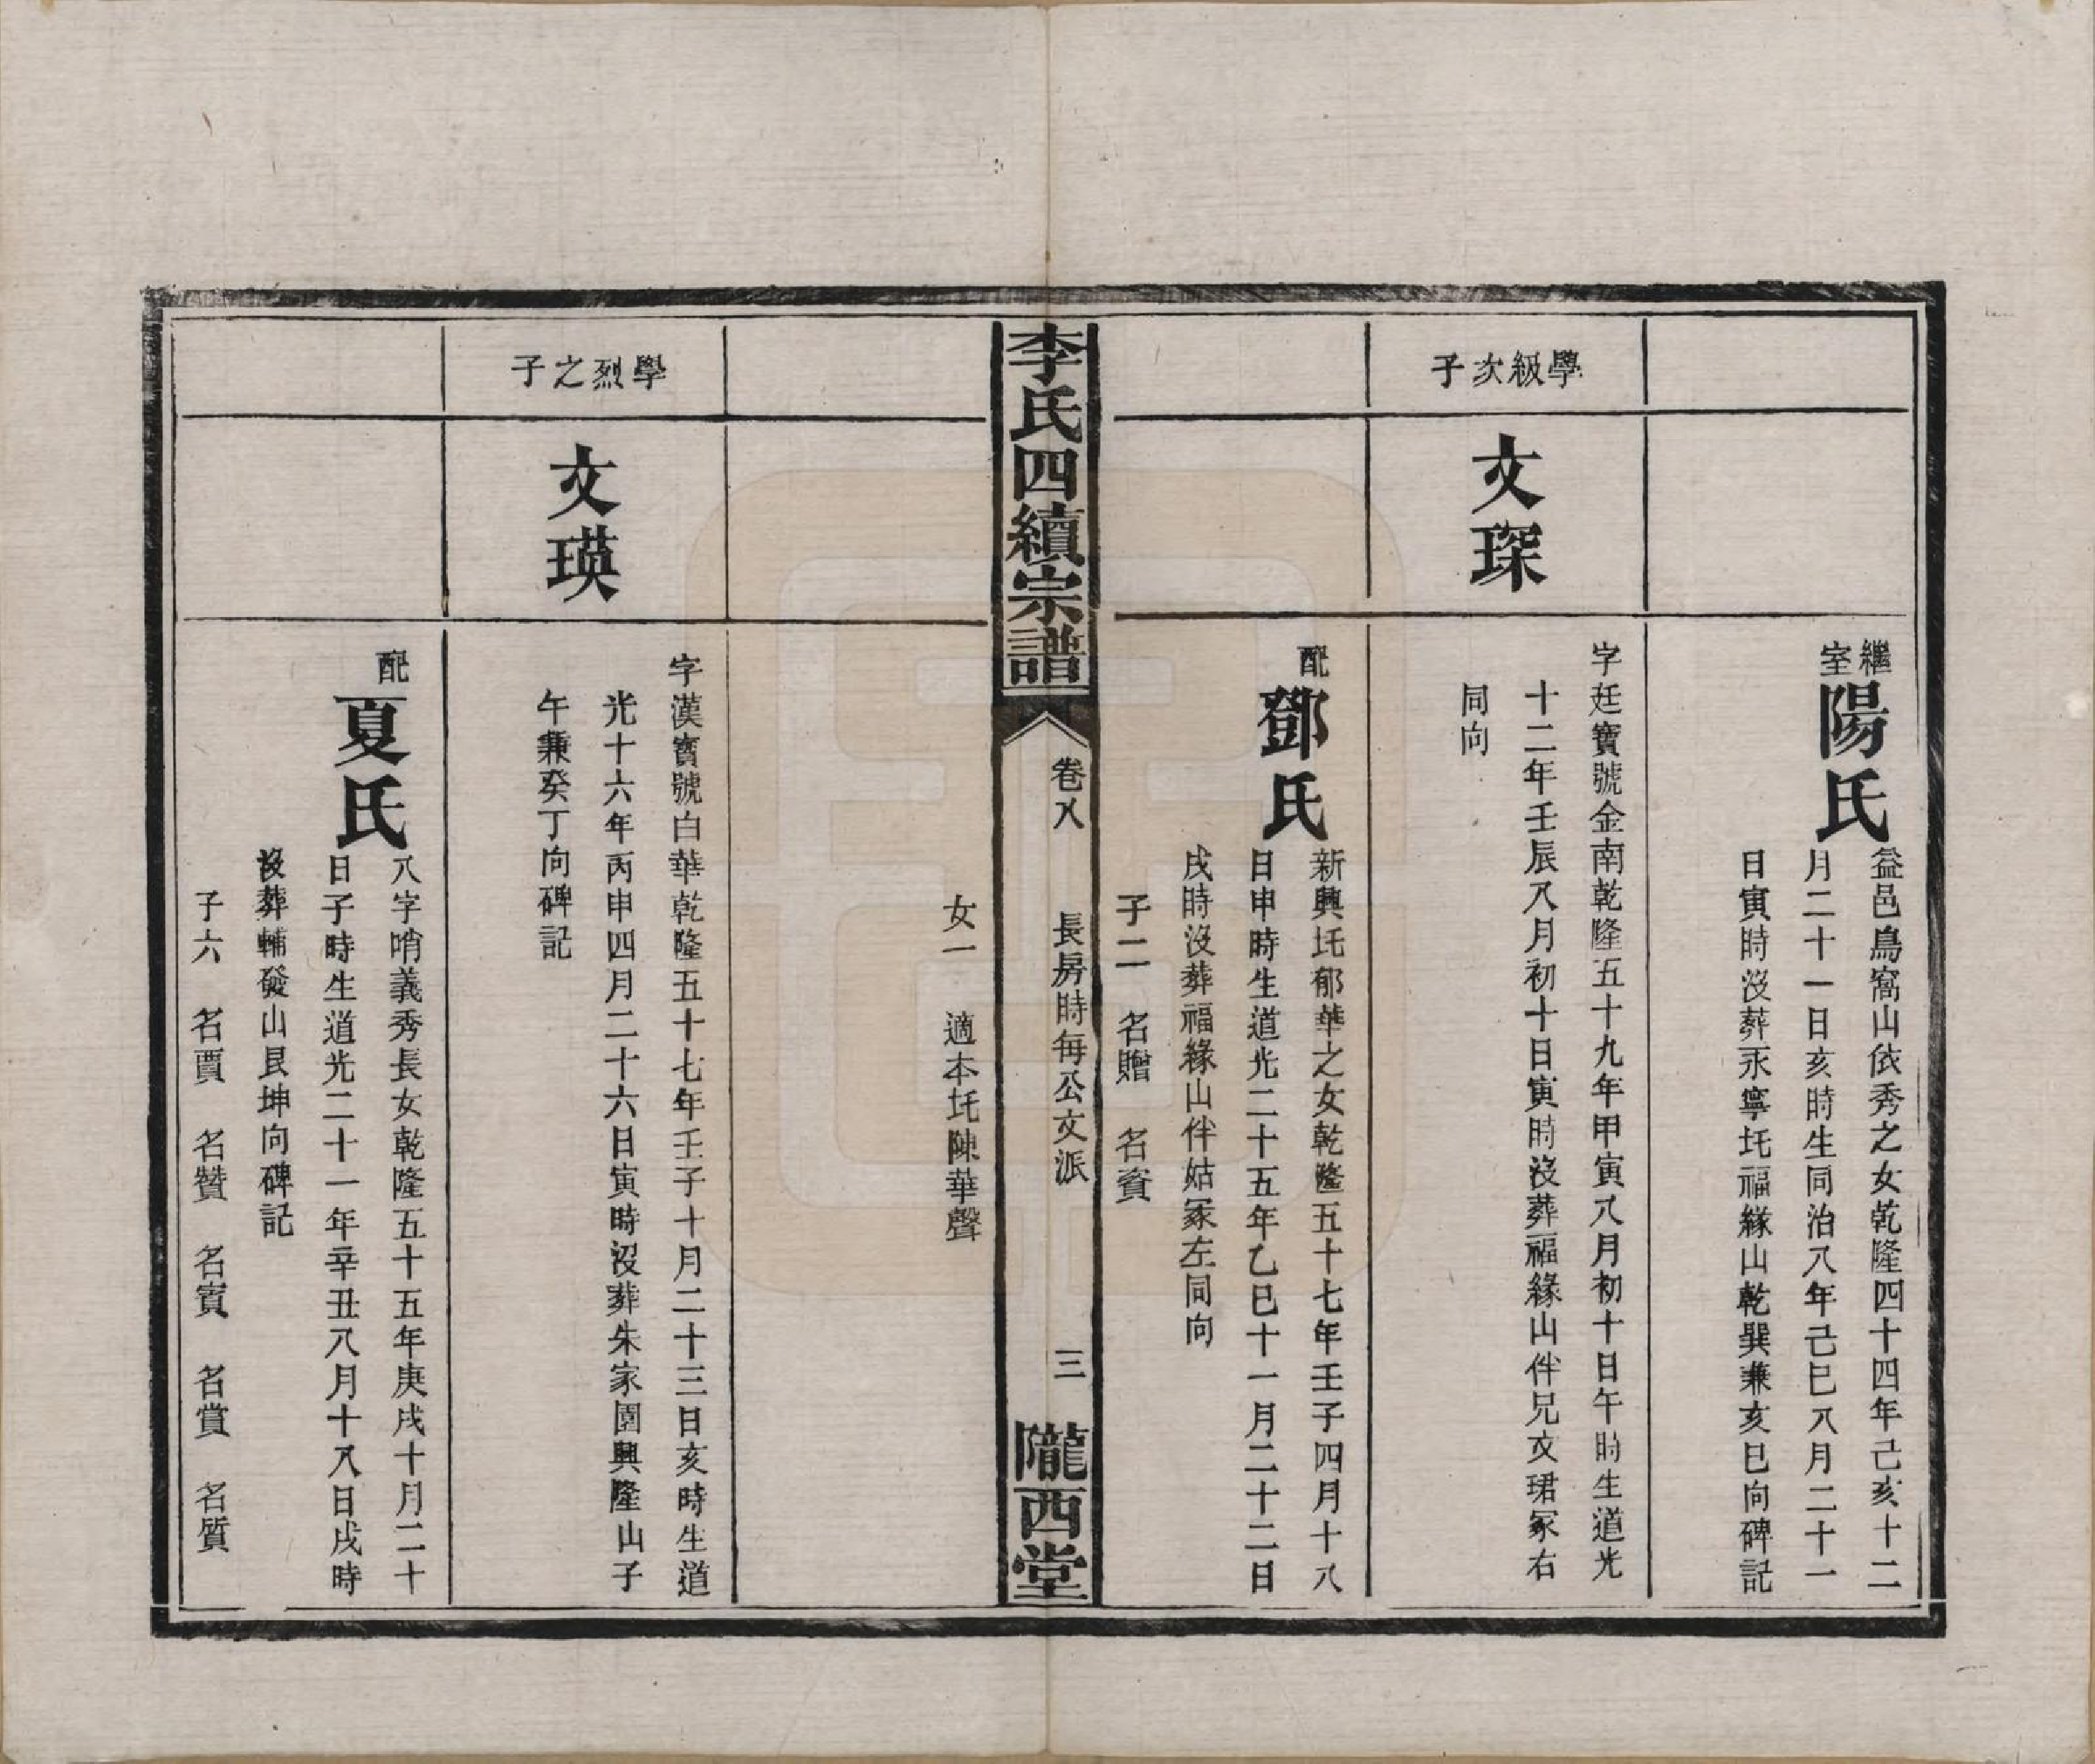 繼室陽氏
益邑鳥窩山依秀之女乾隆四十四年己亥十二
月二十一日亥時生同治八年己巳八月二十一
日寅時沒葬永寧圫福緣山乾巽兼亥巳向碑記
學級次子
文琛
字廷寶號金南乾隆五十九年甲寅八月初十日午時生道光
十二年壬辰八月初十日寅時沒葬福緣山伴兄文珺冢右
同向
配鄧氏
新興圫郁華之女乾隆五十七年壬子四月十八
日申時生道光二十五年乙巳十一月二十二日
戌時沒葬福緣山伴姑冢左同向
子二 名贈 名資
李氏四續宗譜
卷八 長房時每公文派 三
隴西堂
女一 適本圫陳華聲
學烈之子
文瑛
字漢寶號白華乾隆五十七年壬子十月二十三日亥時生道
光十六年丙申四月二十六日寅時沒葬朱家園興隆山子
午兼癸丁向碑記
配夏氏
八字哨義秀長女乾隆五十五年庚戌十月二十
日子時生道光二十一年辛丑八月十八日戌時
沒葬輔發山艮坤向碑記
子六 名賈 名贊 名賓 名賞 名質